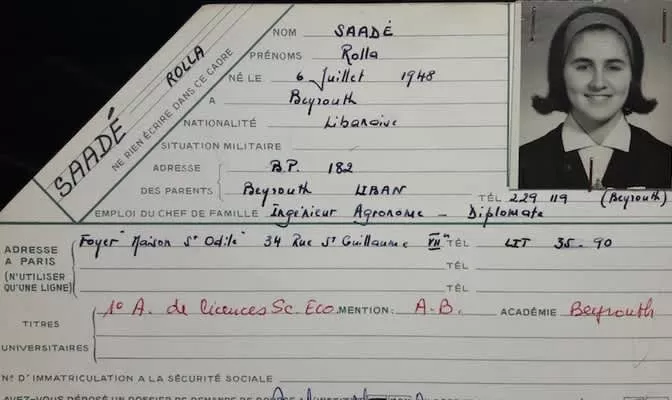 SAADÉ ROLLA
NE RIEN ÉCRIRE DANS CE CADRE
NOM SAADÉ
PRÉNOMS Rolla
NÉ LE 6 Juillet 1948
A Beyrouth
NATIONALITÉ Libanaise
SITUATION MILITAIRE
ADRESSE B.P. 182
DES PARENTS Beyrouth LIBAN TÉL 229 119 (Beyrouth)
EMPLOI DU CHEF DE FAMILLE Ingénieur Agronome - Diplomate
ADRESSE A PARIS Foyer "Maison Ste Odile" 34 Rue St Guillaume VIIe TÉL LIT 35-90
(N'UTILISER QU'UNE LIGNE) TÉL
TÉL
TITRES 1e A. de licences Sc. Eco. MENTION: A.B. ACADÉMIE Beyrouth
UNIVERSITAIRES
N° D'IMMATRICULATION A LA SÉCURITÉ SOCIALE
AVEZ-VOUS DÉPOSÉ UN DOSSIER DE DEMANDE DE